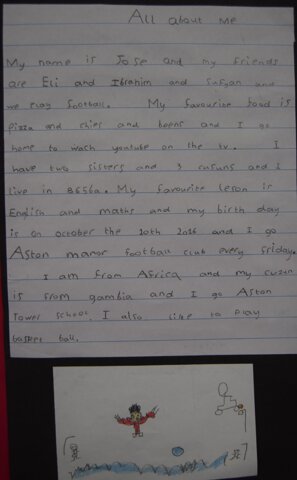 All about me
My name is Jose and my friends
are Eli and Ibrahim and Sufyan and
we play football. My favourite food is
pizza and chies and beens and I go
home to wach youtube on the tv. I
have two sisters and 3 cusuns and I
live in B656a. My favourite leson is
English and maths and my birth day
is on october the 10th 2016 and I go
Aston manor football club every friday.
I am from Africa and my cuzin
is from gambia and I go Aston
Tower school. I also like to play
basket ball.